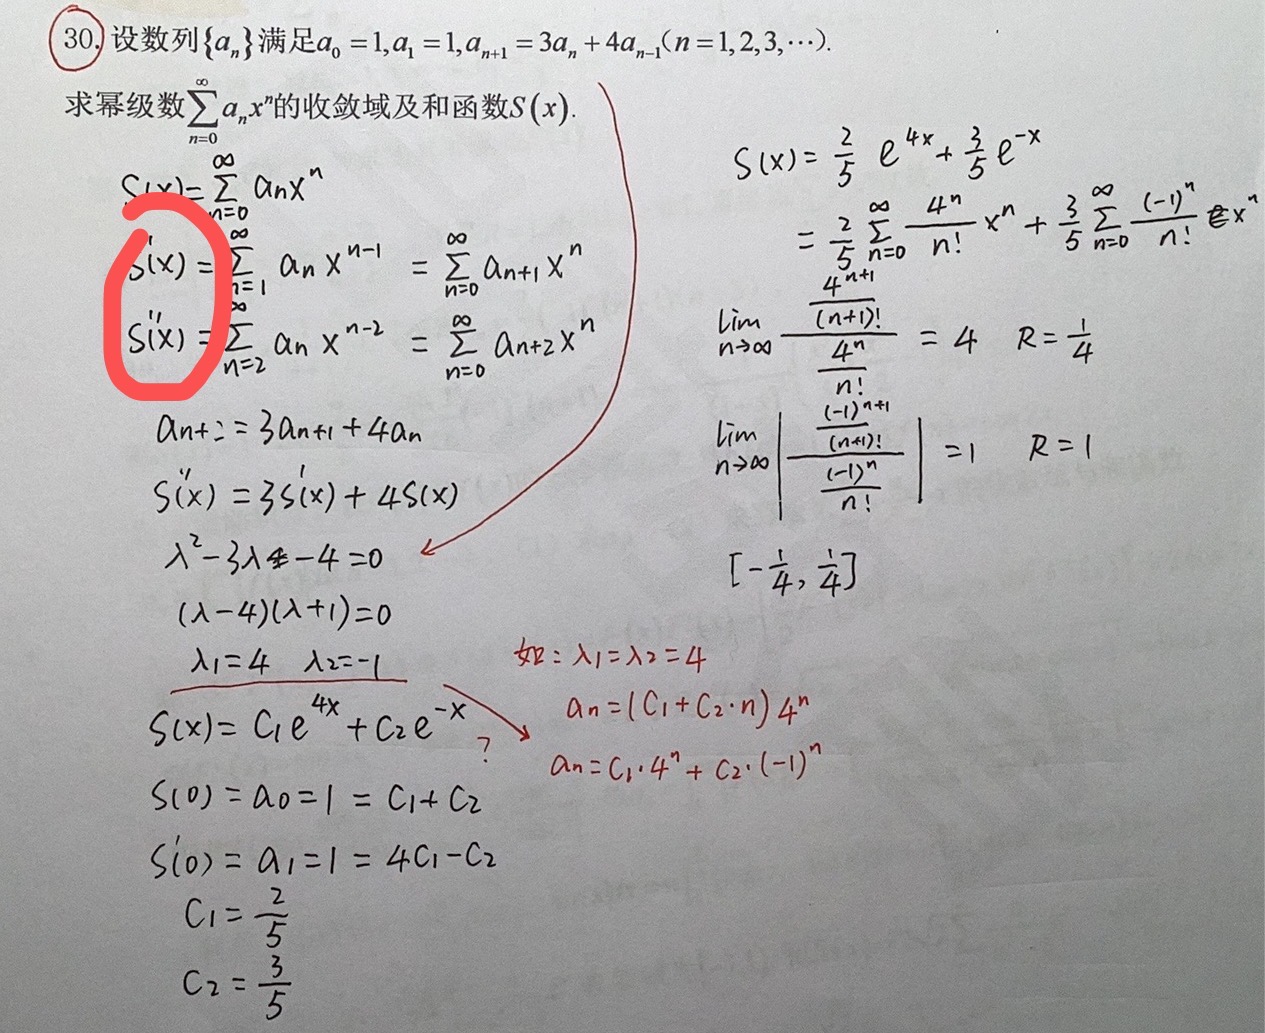 30. 设数列{aₙ}满足a₀=1,a₁=1,aₙ₊₁=3aₙ+4aₙ₋₁(n=1,2,3,⋯).
求幂级数∑_{n=0}^{∞} aₙxⁿ的收敛域及和函数S(x).
S(x)=∑_{n=0}^{∞} aₙxⁿ
S'(x)=∑_{n=1}^{∞} aₙx^{n-1} = ∑_{n=0}^{∞} aₙ₊₁xⁿ
S''(x)=∑_{n=2}^{∞} aₙx^{n-2} = ∑_{n=0}^{∞} aₙ₊₂xⁿ
aₙ₊₂=3aₙ₊₁+4aₙ
S''(x)=3S'(x)+4S(x)
λ²-3λ-4=0
(λ-4)(λ+1)=0
λ₁=4 λ₂=-1
S(x)=C₁e^{4x}+C₂e^{-x} ?
S(0)=a₀=1=C₁+C₂
S'(0)=a₁=1=4C₁-C₂
C₁=2/5
C₂=3/5
如:λ₁=λ₂=4
aₙ=(C₁+C₂·n)4ⁿ
aₙ=C₁·4ⁿ+C₂·(-1)ⁿ
S(x)=2/5 e^{4x}+3/5 e^{-x}
=2/5 ∑_{n=0}^{∞} 4ⁿ/n! xⁿ + 3/5 ∑_{n=0}^{∞} (-1)ⁿ/n! xⁿ
lim_{n→∞} (4^{n+1}/(n+1)!)/(4ⁿ/n!) = 4 R=1/4
lim_{n→∞} |((-1)^{n+1}/(n+1)!)/((-1)ⁿ/n!)| =1 R=1
[-1/4, 1/4]